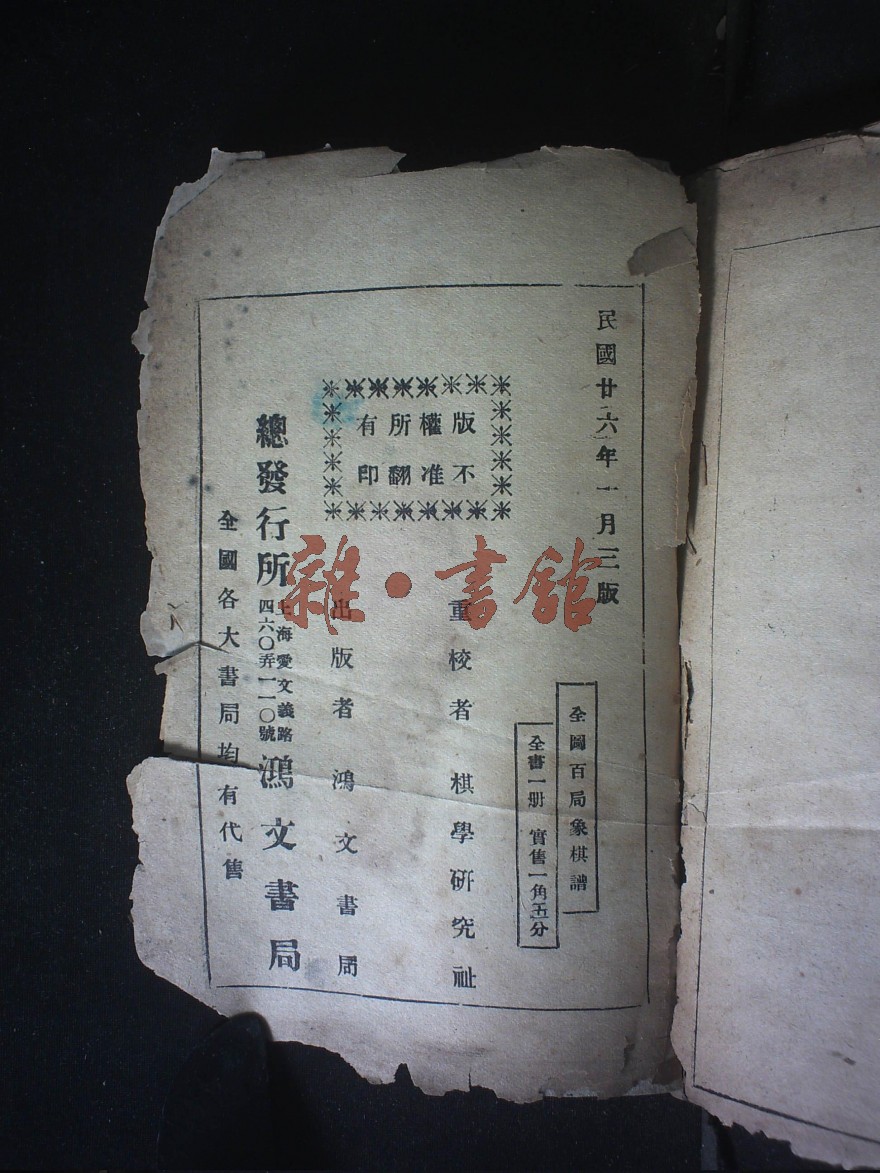 民國廿六年一月三版
全圖百局象棋譜
全書一册 實售一角五分
版權所有
不准翻印
重校者 棋學研究社
出版者 鴻文書局
總發行所 上海愛文義路四六〇弄一一〇號 鴻文書局
全國各大書局均有代售
雜·書館